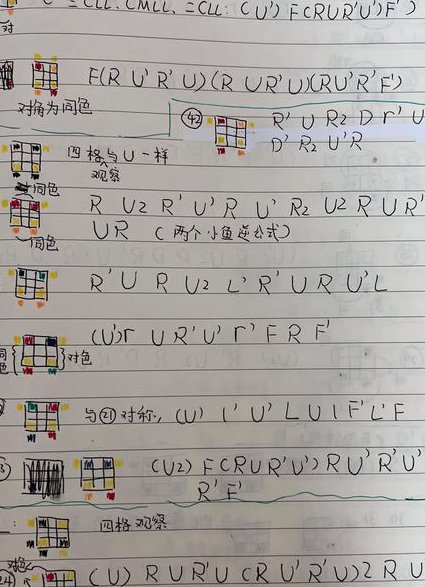 二CLL. CMLL, 二CLL: (U') F(RUR'U')F')
对
F(R U' R' U)(R U R' U)(RU'R'F')
对角为同色
㊷ R' U R2 D r' U
D' R2 U'R
四格与U一样
观察
同色
R U2 R' U' R U' R2 U2 R U R'
U R (两个小鱼逆公式)
同色
R' U R U2 L' R' U R U' L
(U') r U R' U' r' F R F'
同色 对色
与㉑对称, (U) l' U' L U l F' L' F
(U2) F(RUR'U')RU'R'U'
R' F'
四格 观察
对色
(U) R U R' U (R U' R' U)2 R U